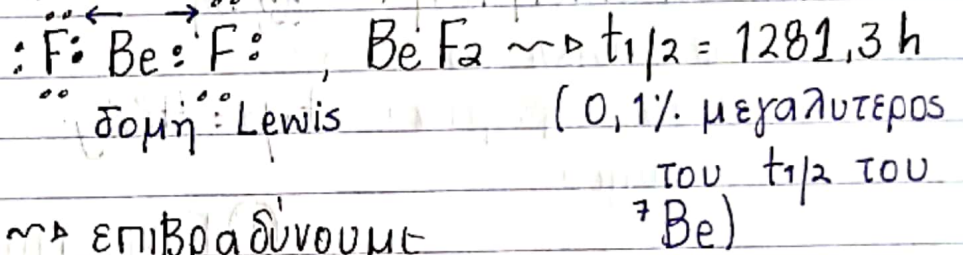 :F: Be : F: , BeF2 ~~▷ t1/2 = 1281,3 h
δομή : Lewis (0,1% μεγαλυτερος
του t1/2 του
⁷Be)
~~▷ επιβραδύνουμε